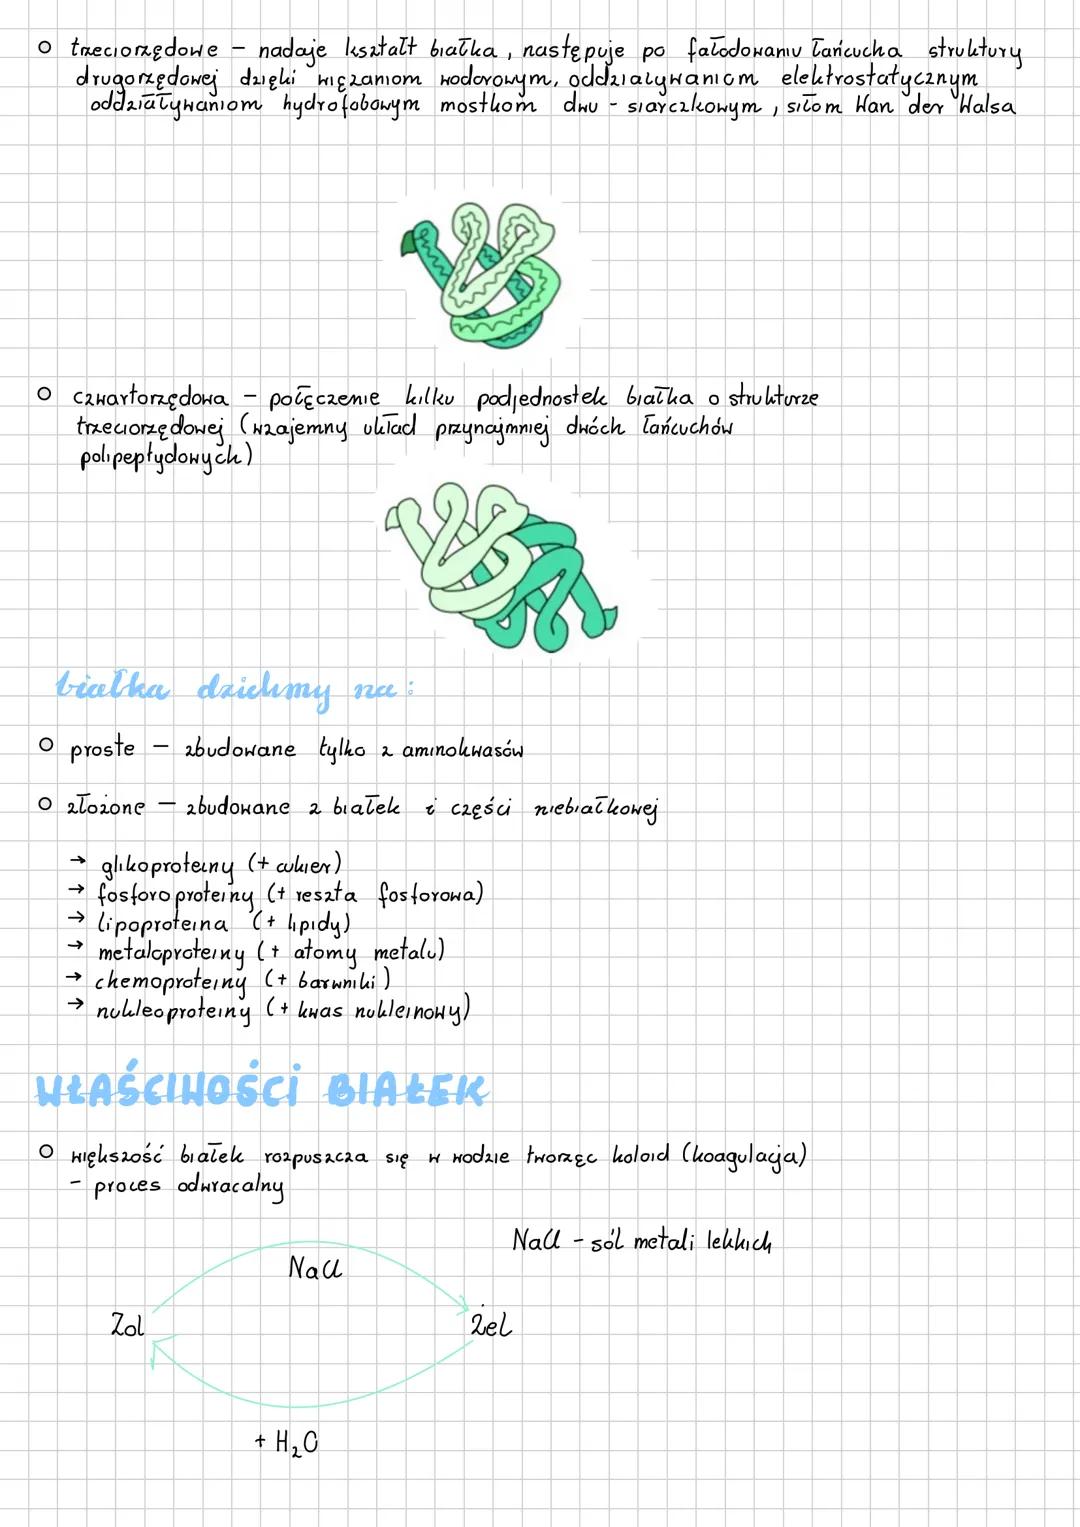 trzeciorzędowe - nadaje kształt białka, następuje po fałodowaniu łańcucha struktury
drugorzędowej dzięki wiązaniom wodorowym, oddziaływaniom elektrostatycznym
oddziaływaniom hydrofobowym mostkom dwu-siarczkowym, siłom Wan der Walsa
czwartorzędowa - połączenie kilku podjednostek białka o strukturze
trzeciorzędowej (wzajemny układ przynajmniej dwóch łańcuchów
polipeptydowych)
białka dzielimy na:
proste - zbudowane tylko z aminokwasów
złożone - zbudowane z białek i części niebiałkowej
→ glikoproteiny (+ cukier)
→ fosforoproteiny (+ reszta fosforowa)
→ lipoproteina (+ lipidy)
→ metaloproteiny (+ atomy metalu)
→ chemoproteiny (+ barwniki)
→ nukleoproteiny (+ kwas nukleinowy)
WŁAŚCIWOŚCI BIAŁEK
większość białek rozpuszcza się w wodzie tworząc koloid (koagulacja)
- proces odwracalny
NaCl - sól metali lekkich
NaCl
Zol
żel
+ H₂O